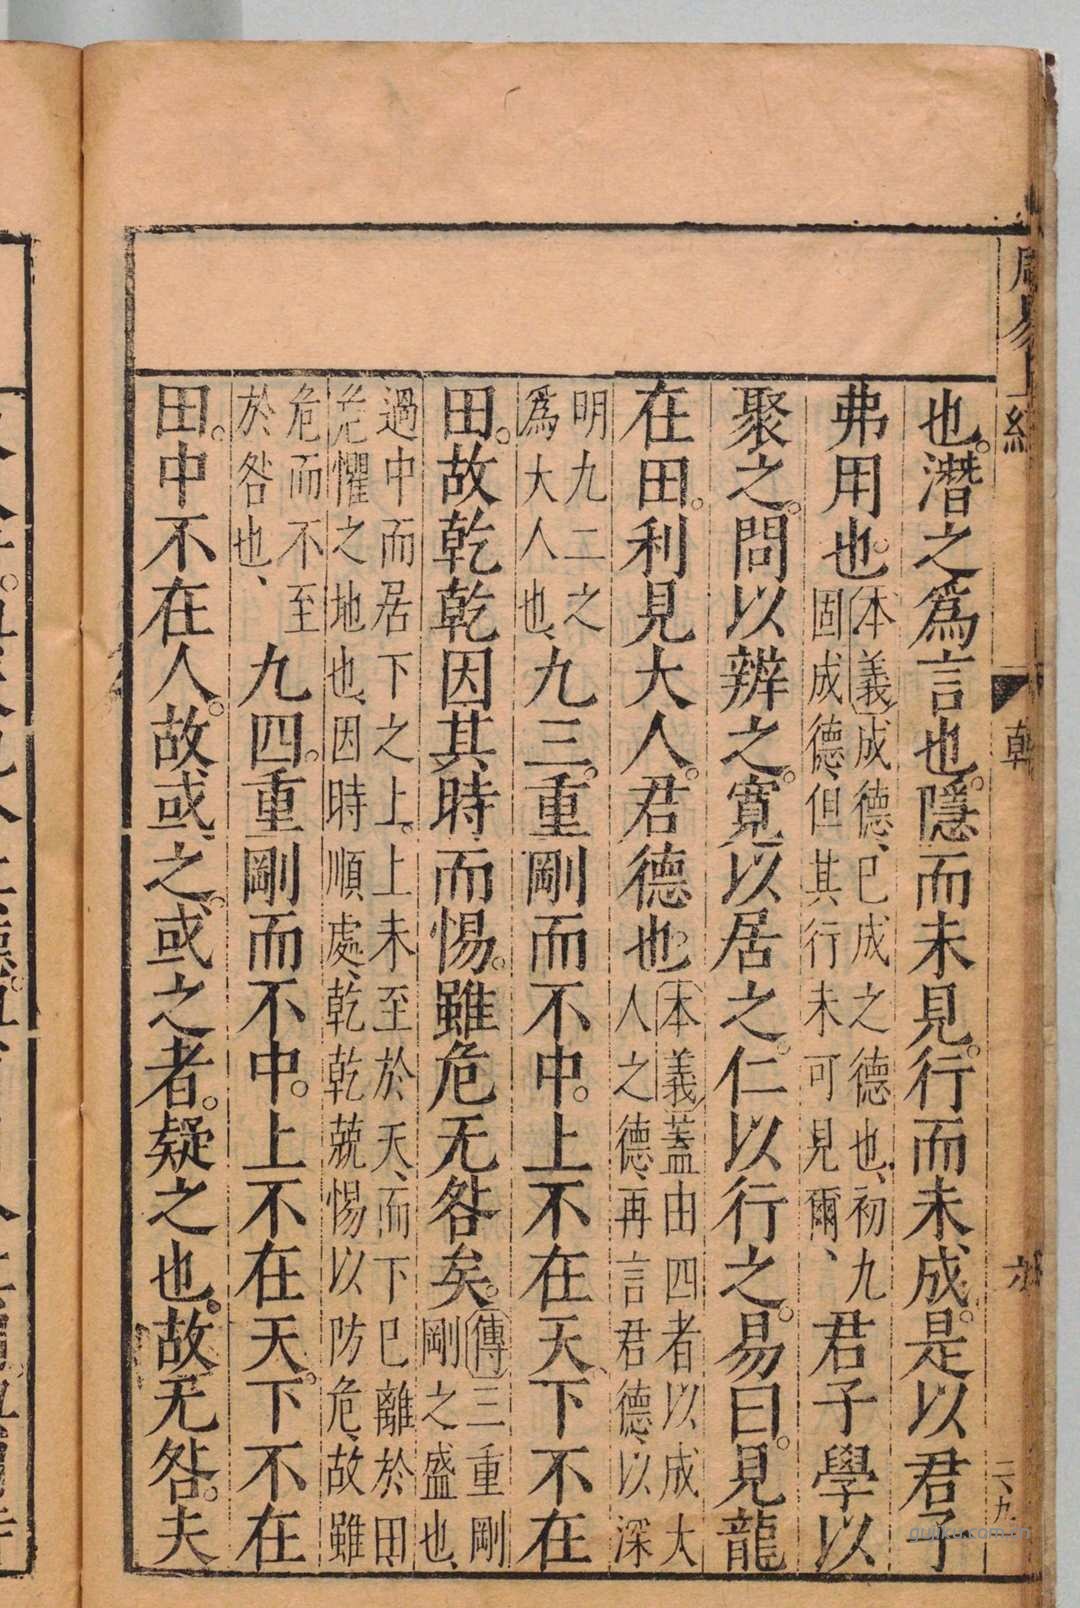 周易上經 乾
也。潛之爲言也。隱而未見。行而未成。是以君子
弗用也。本義成德、已成之德也、初九固成德、但其行未可見爾、君子學以
聚之。問以辨之。寬以居之。仁以行之。易曰。見龍
在田。利見大人。君德也。本義蓋由四者以成大人之德、再言君德、以深
明九二之爲大人也、九三。重剛而不中。上不在天。下不在
田。故乾乾因其時而惕。雖危无咎矣。傳三重剛剛之盛也、
過中而居下之上。上未至於天、而下已離於田、危懼之地也、因時順處、乾乾兢惕以防危、故雖
危而不至於咎也、九四。重剛而不中。上不在天。下不在
田。中不在人。故或之。或之者。疑之也。故无咎。夫